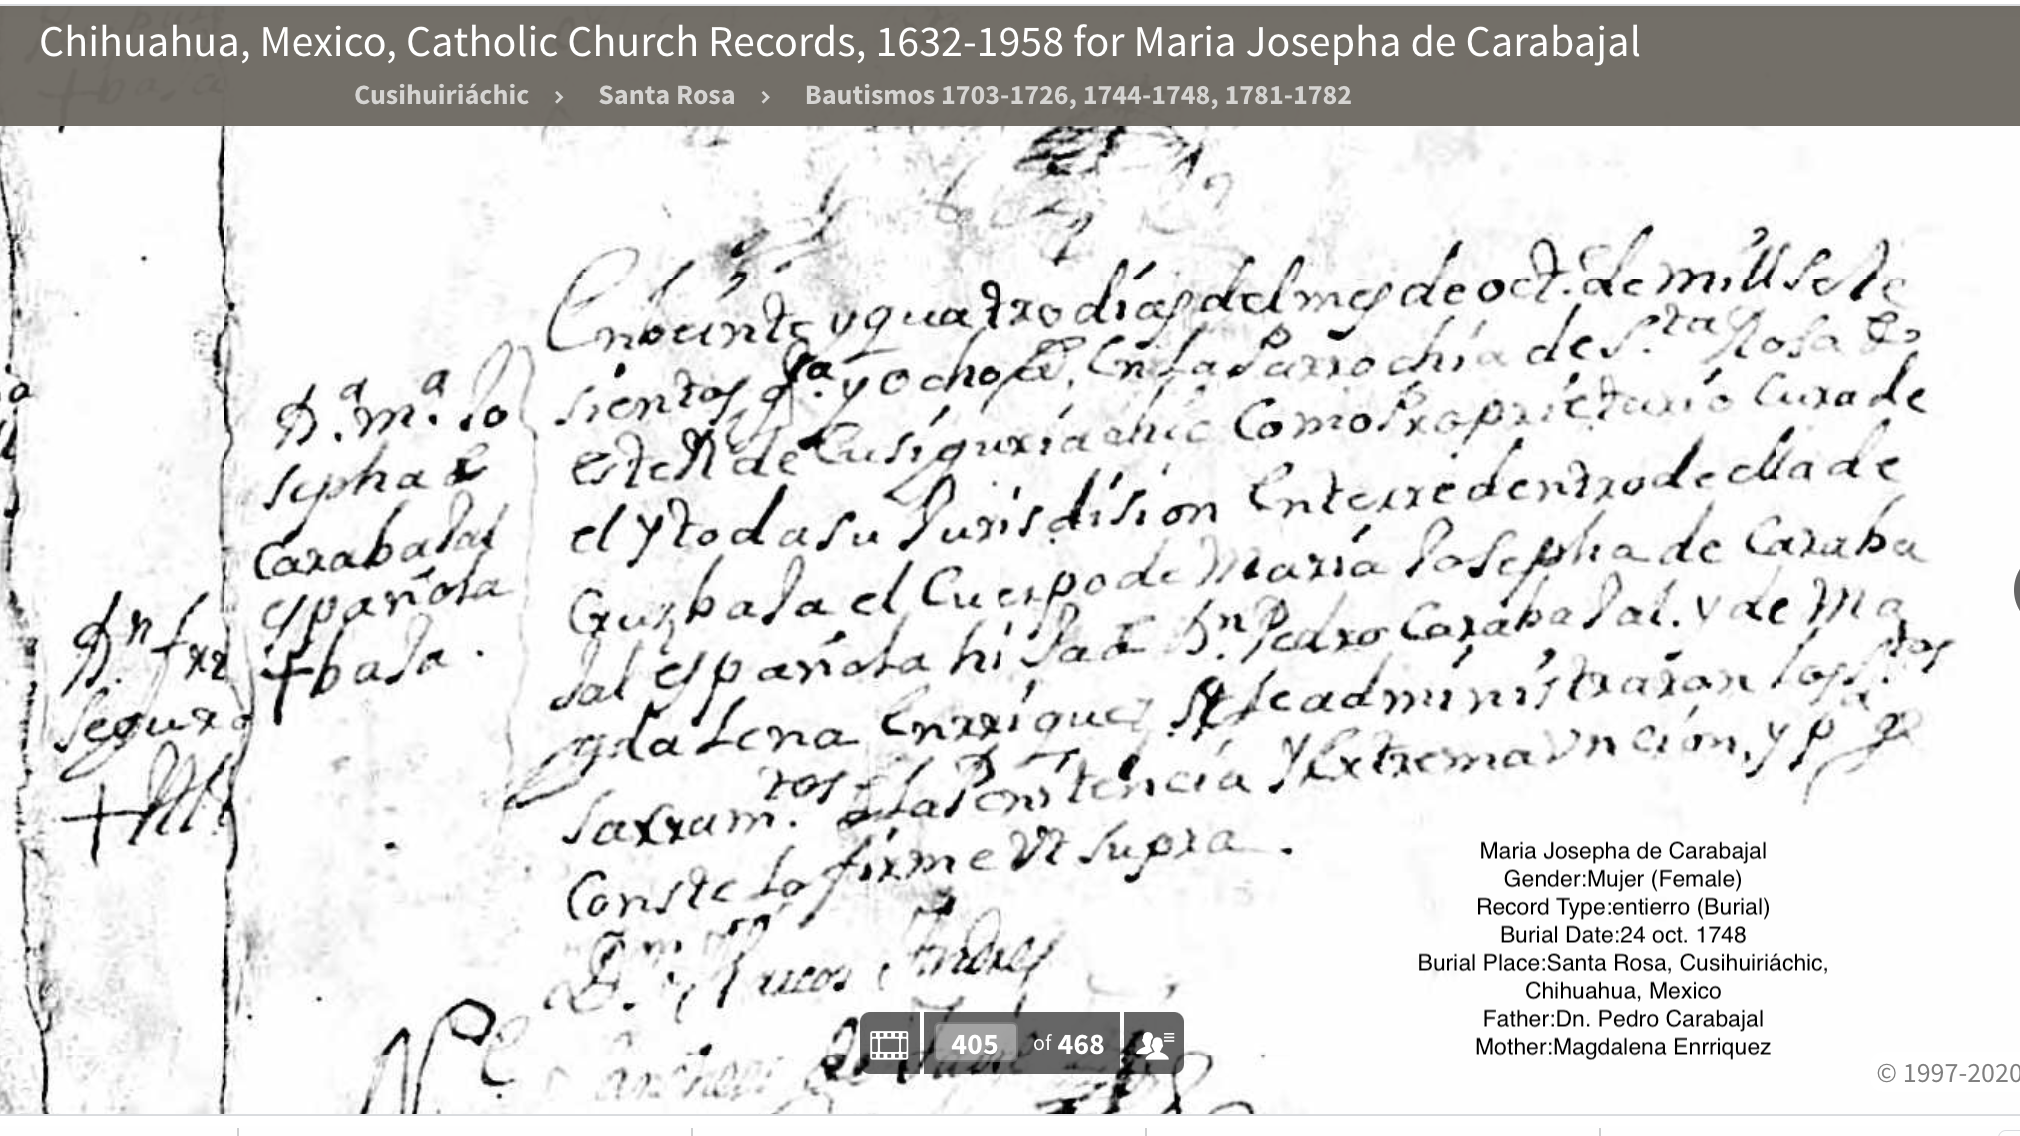 Chihuahua, Mexico, Catholic Church Records, 1632-1958 for Maria Josepha de Carabajal
Cusihuiriáchic > Santa Rosa > Bautismos 1703-1726, 1744-1748, 1781-1782
D.ª m.ª Jo
sepha de
Carabajal
española
+ baja.
Dn fr
Segura
En beinte y quatro días del mes de oct.e de mill sete
sientos q.ta y ocho a.s, En la Parrochia de S.ta Rosa de
este Rl de Cusiguriachic Como Proprietario Cura de
el y toda su Jurisdision Enterre dentro de ella de
Cruz baja el Cuerpo de María Josepha de Caraba
jal española hija de Dn. Pedro Carabajal. y de Ma
gdalena Enrriquez se le administraron los S.tos
Sacram.tos de la Penitencia y Extrema Vncion, y p.a q.e
Conste lo firme Vt supra.
405 of 468
Maria Josepha de Carabajal
Gender:Mujer (Female)
Record Type:entierro (Burial)
Burial Date:24 oct. 1748
Burial Place:Santa Rosa, Cusihuiriáchic,
Chihuahua, Mexico
Father:Dn. Pedro Carabajal
Mother:Magdalena Enrriquez
© 1997-2020